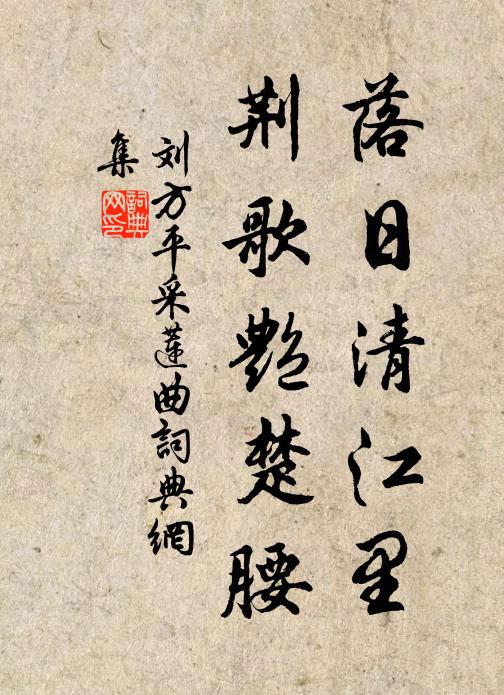 落日清江里
荆歌艶楚腰
刘方平采莲曲詞典網
集
詞典
网印